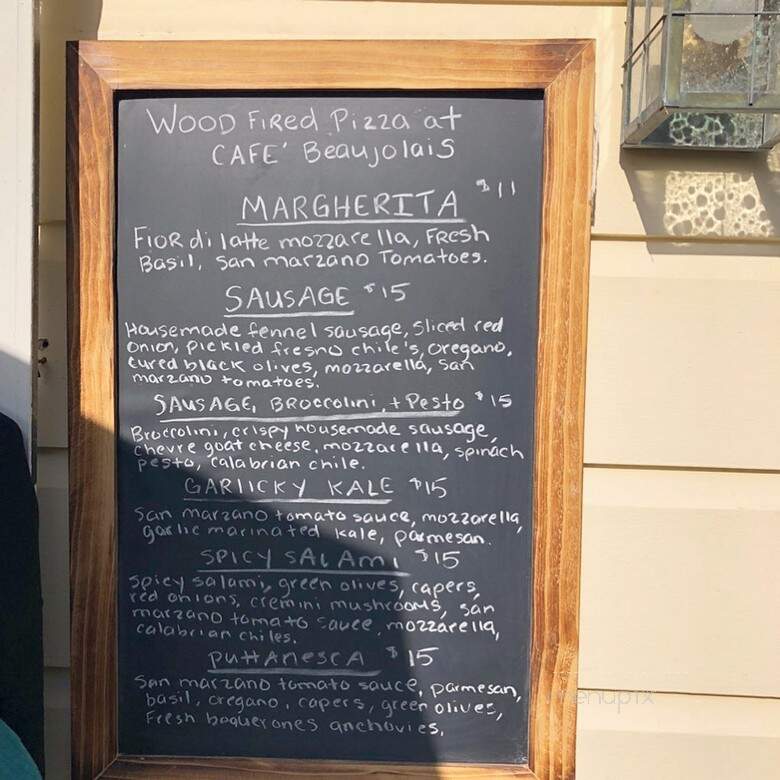 WOOD FIRED PIZZA at
CAFE' Beaujolais
MARGHERITA $11
FIOR di latte mozzarella, FRESH
Basil, San marzano Tomatoes.
SAUSAGE $15
Housemade fennel sausage, sliced red
onion, pickled fresno chile's, oregano,
cured black olives, mozzarella, san
marzano tomatoes.
SAUSAGE, BROCCOLINI, + PESTO $15
Broccolini, crispy housemade sausage,
chevre goat cheese, mozzarella, spinach
pesto, calabrian chile.
GARLICKY KALE $15
San marzano tomato sauce, mozzarella,
garlic marinated kale, parmesan.
SPICY SALAMI $15
Spicy salami, green olives, capers,
red onions, cremini mushrooms, san
marzano tomato sauce, mozzarella,
calabrian chiles.
PUTTANESCA $15
San marzano tomato sauce, parmesan,
basil, oregano, capers, green olives,
Fresh boquerones anchovies.
menupix